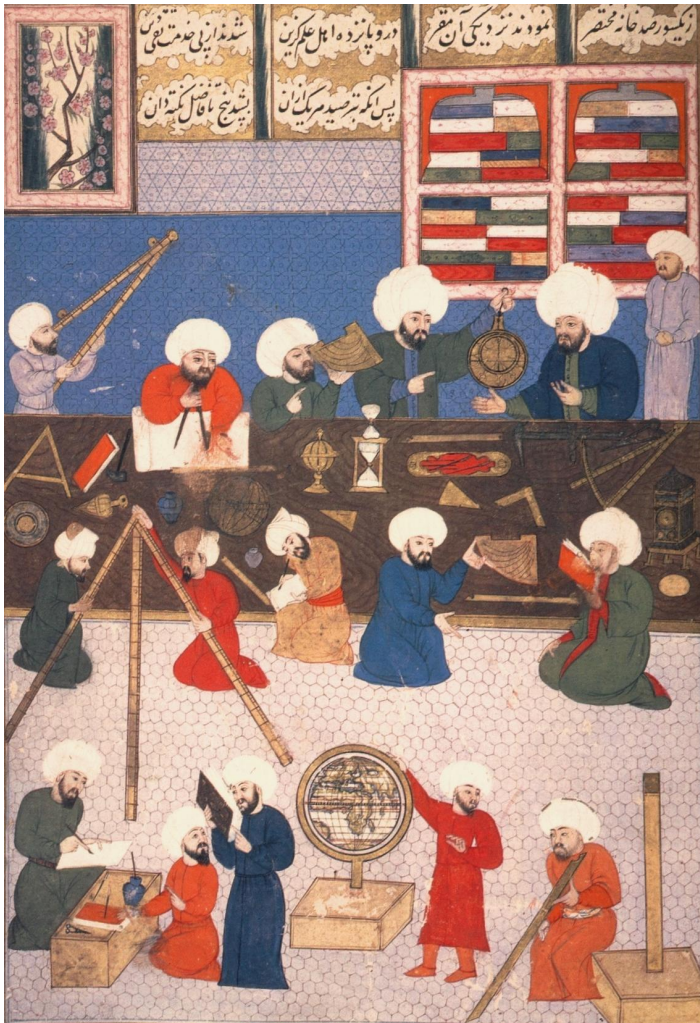 زیکسو رصد خانه مختصر
نمودند نزدیکی آن مقر
درو پانزده اهل علم گزین
شدند از پی خدمت تقی دین
پس انکه بترصید هریک ازان
بشد پنج با فاضل نکته دان